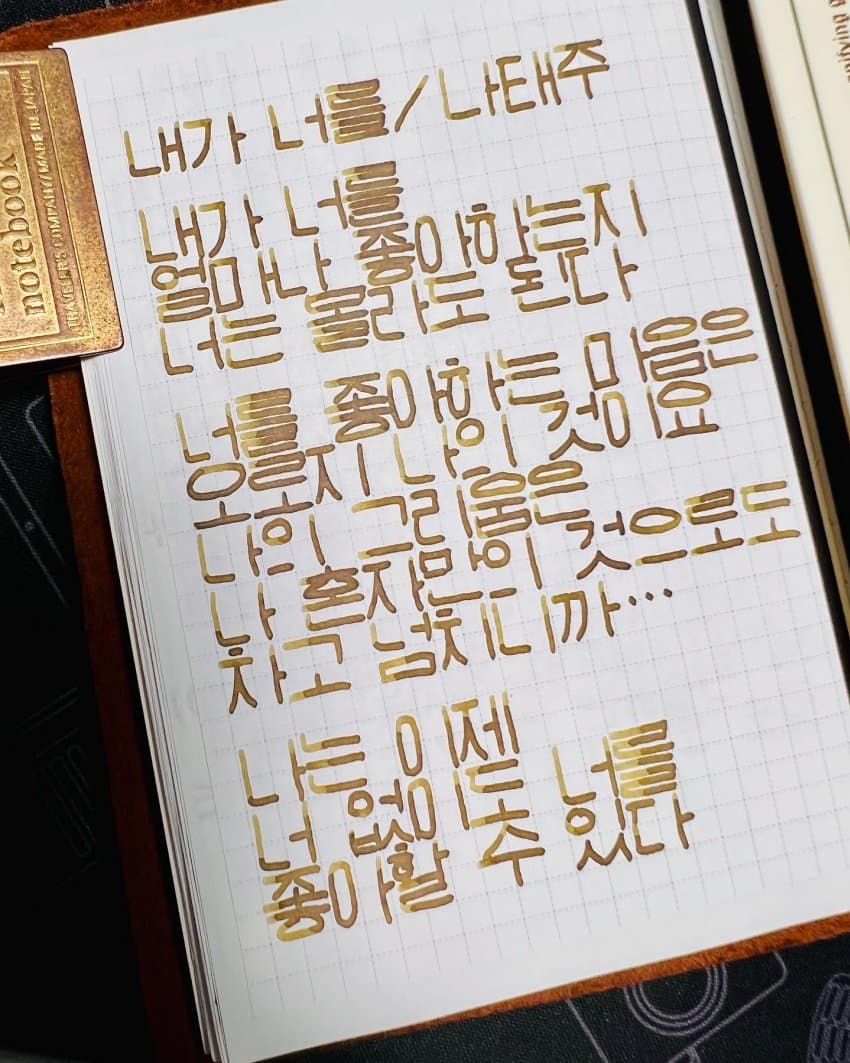 내가 너를 / 나태주
내가 너를
얼마나 좋아하는지
너는 몰라도 된다
너를 좋아하는 마음은
오로지 나의 것이요
나의 그리움은
나 혼자만의 것으로도
차고 넘치니까…
나는 이제
너 없이도 너를
좋아할 수 있다
notebook
TRAVELER'S COMPANY / MADE IN JAPAN